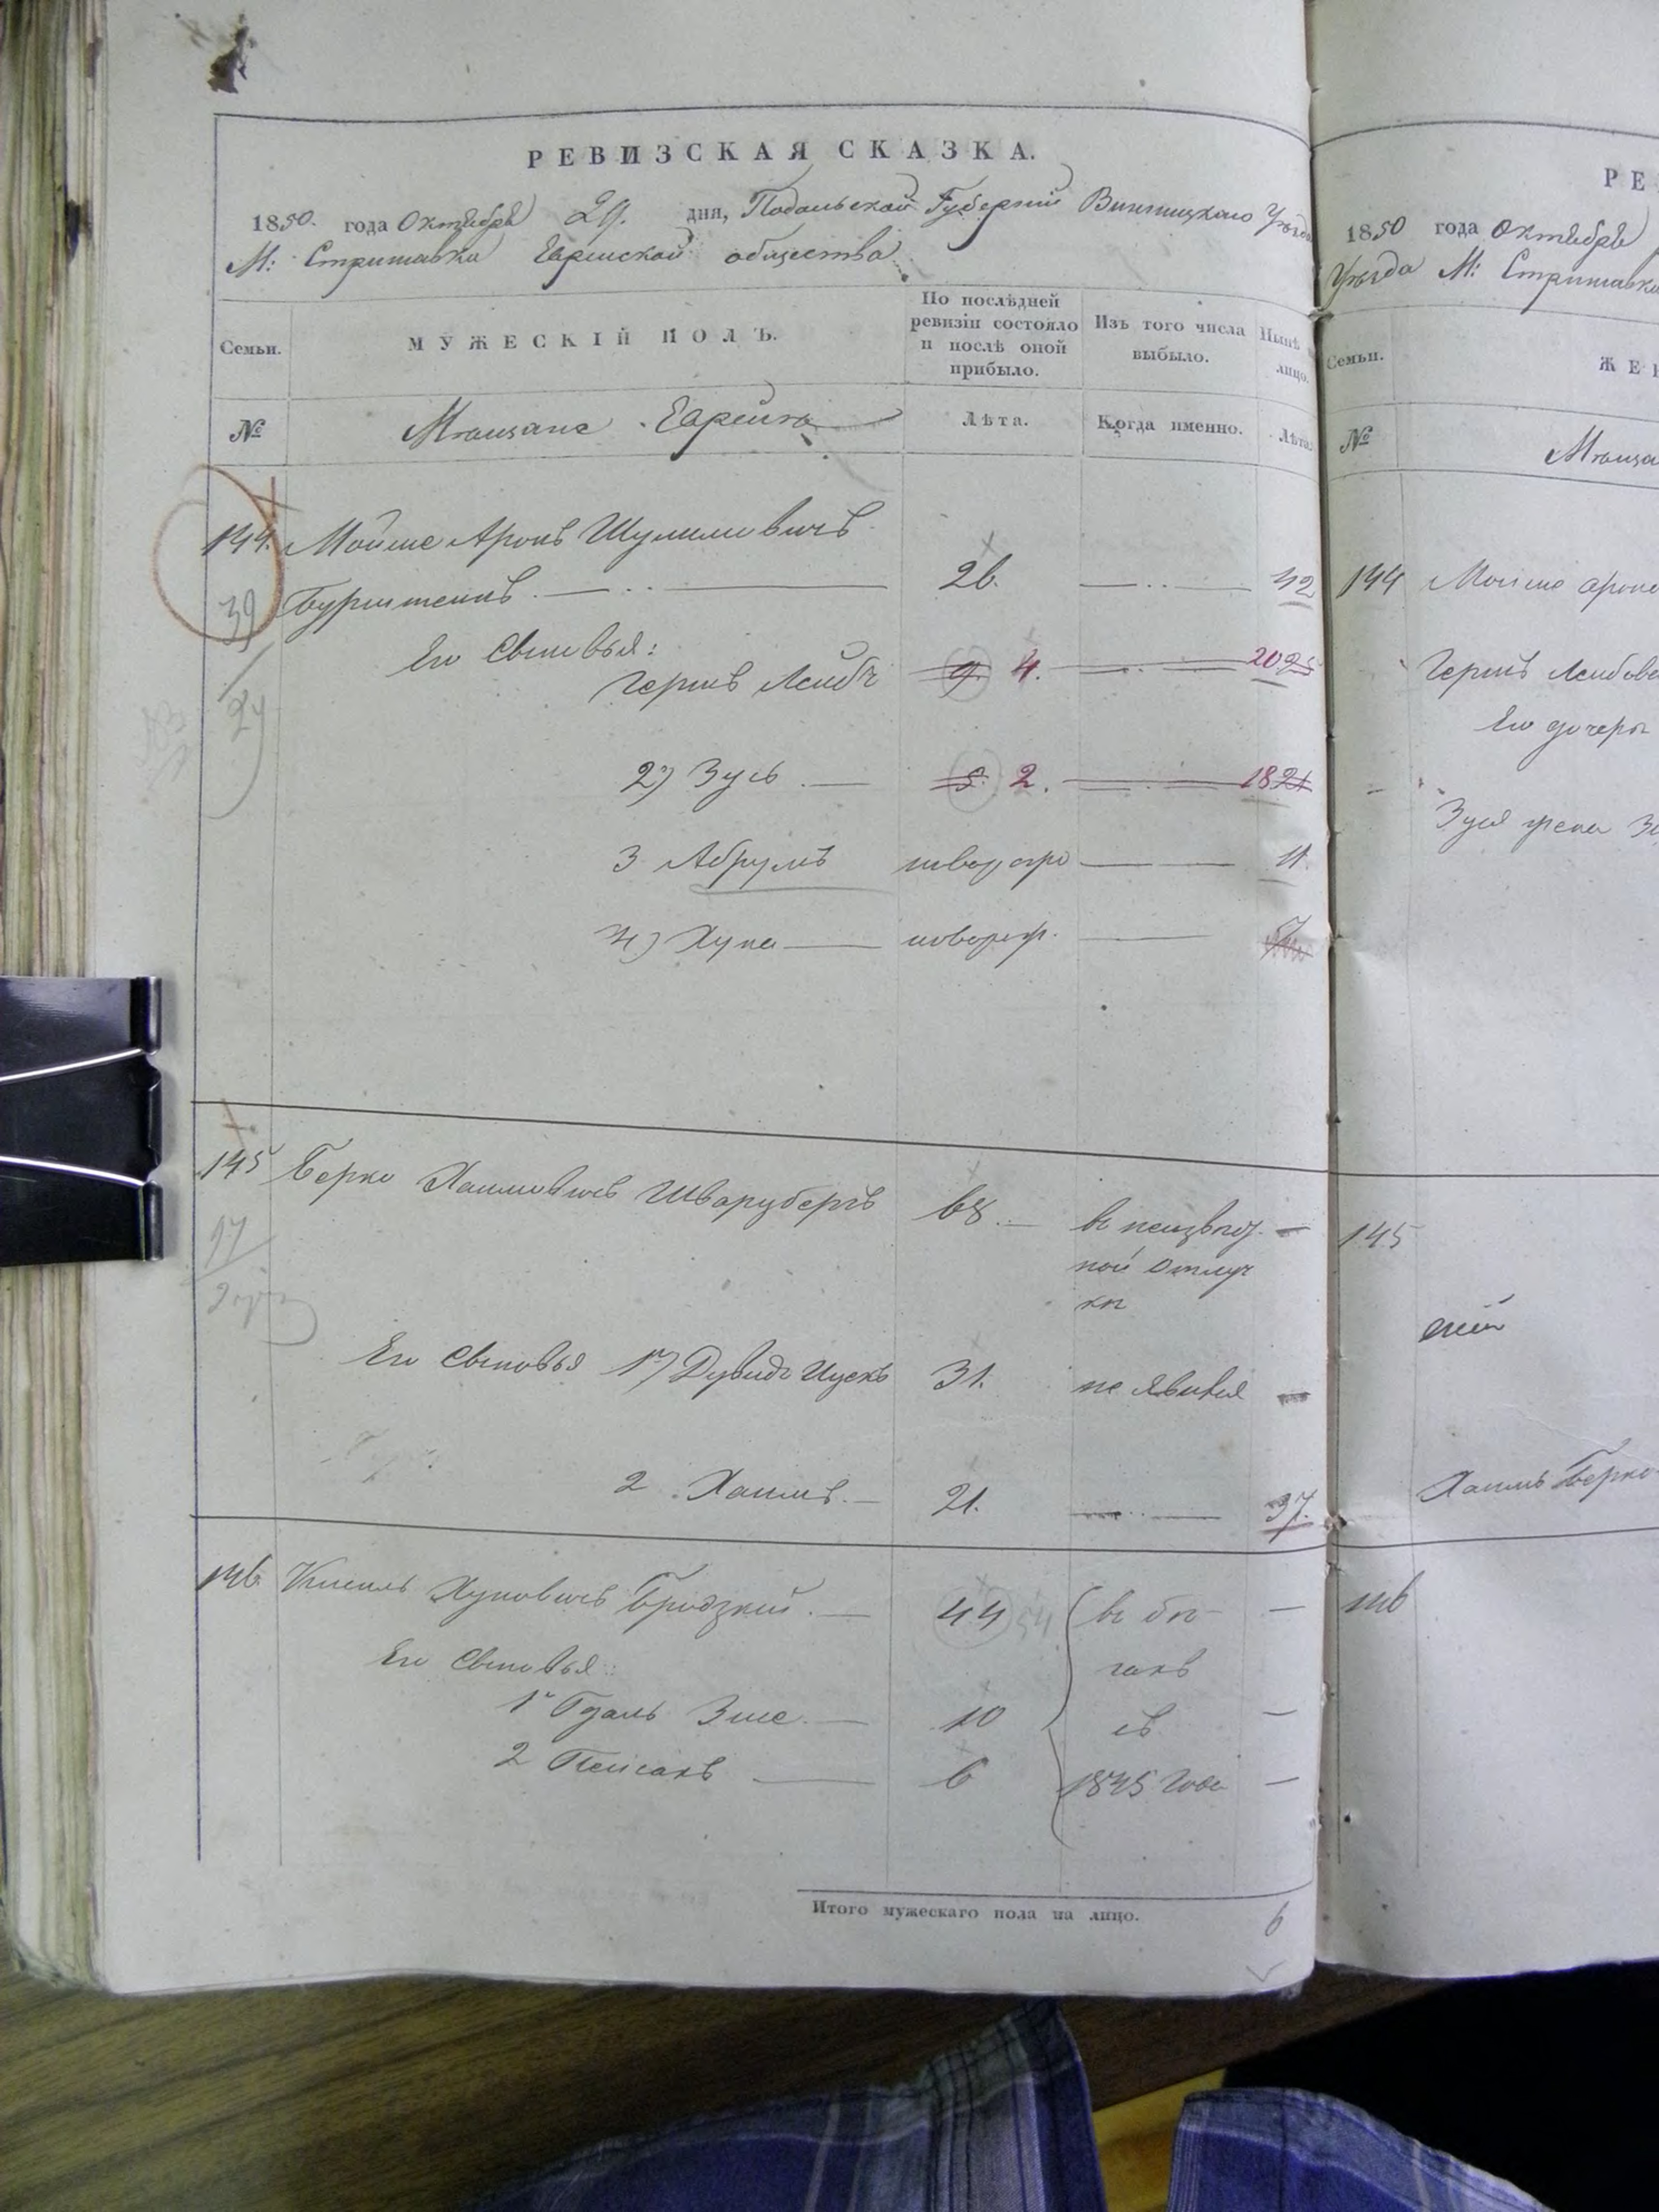 РЕВИЗСКАЯ СКАЗКА.
1850. года Октября 29. дня, Подольской Губернии Винницкаго Уезда
М: Стрижавки Еврейскаго общества
Семьи.
МУЖЕСКІЙ ПОЛЪ.
По послѣдней ревизіи состояло и послѣ оной прибыло.
Изъ того числа выбыло.
Нынѣ на лицо.
№
Мѣщане Евреи
Лѣта.
Когда именно.
Лѣта
144. Мойше Аронъ Шулимовичъ
39 Бурштеинъ. 26. 42
Его Сыновья:
Гершъ Лейбъ 9. 4. 20 25
24
2й) Зусь 5. 2. 18 21
3 Абрумъ новорож 11.
4) Хуна новорож.
145 Берко Хаимовичъ Шварцбергъ 68. въ неизвѣст-
ной отлуч
кѣ
17
2
Его Сыновья 1й) Дувидъ Ицекъ 31. не явился
2 Хаимъ. 21. 37.
146. Хуновичъ Бродзкий. 44 54 въ бѣ-
Его Сыновья: гахъ
1й Зисе. 10 съ
2 Пейсахъ 6 1845 года
Итого мужескаго пола на лицо. 6
РЕ
1850 года Октября
Уезда М: Стрижавки
Семьи.
ЖЕ
№
Мѣща
144 Мойше Арона
Гершъ Лейбова
Его дочери
Зуся жена
145
нѣтъ
Хаимъ Берко
146